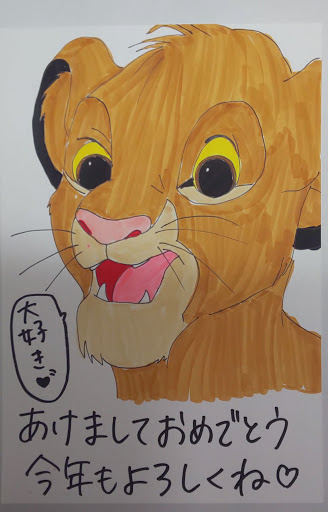 大好き♥
あけましておめでとう
今年もよろしくね♡